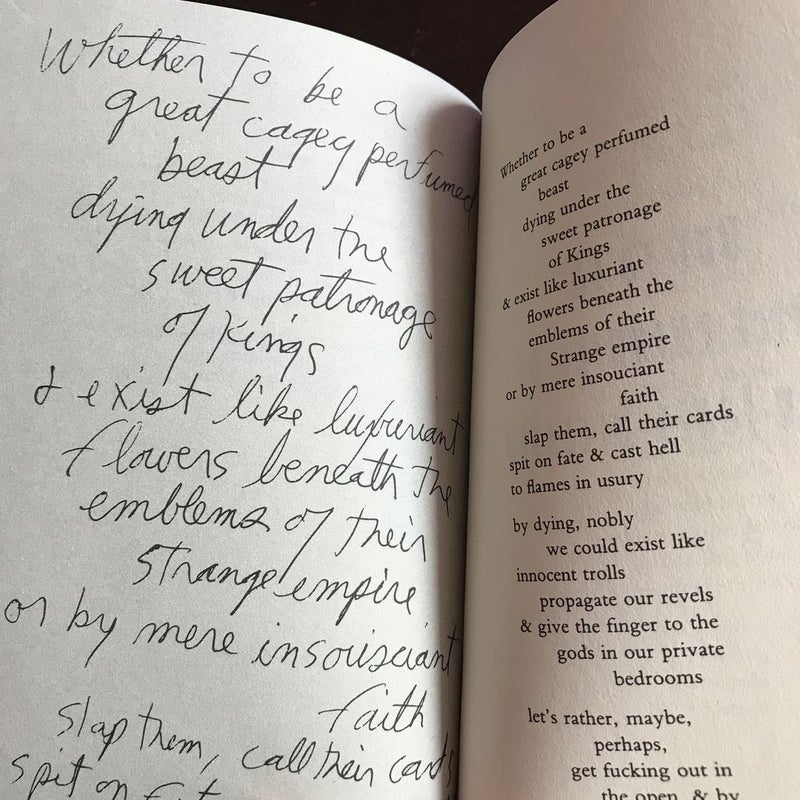 Whether to be a
great cagey perfumed
beast
dying under the
sweet patronage
of Kings
& exist like luxuriant
flowers beneath the
emblems of their
Strange empire
or by mere insouisciant
faith
slap them, call their cards
spit on fate
Whether to be a
great cagey perfumed
beast
dying under the
sweet patronage
of Kings
& exist like luxuriant
flowers beneath the
emblems of their
Strange empire
or by mere insouciant
faith
slap them, call their cards
spit on fate & cast hell
to flames in usury
by dying, nobly
we could exist like
innocent trolls
propagate our revels
& give the finger to the
gods in our private
bedrooms
let's rather, maybe,
perhaps,
get fucking out in
the open, & by